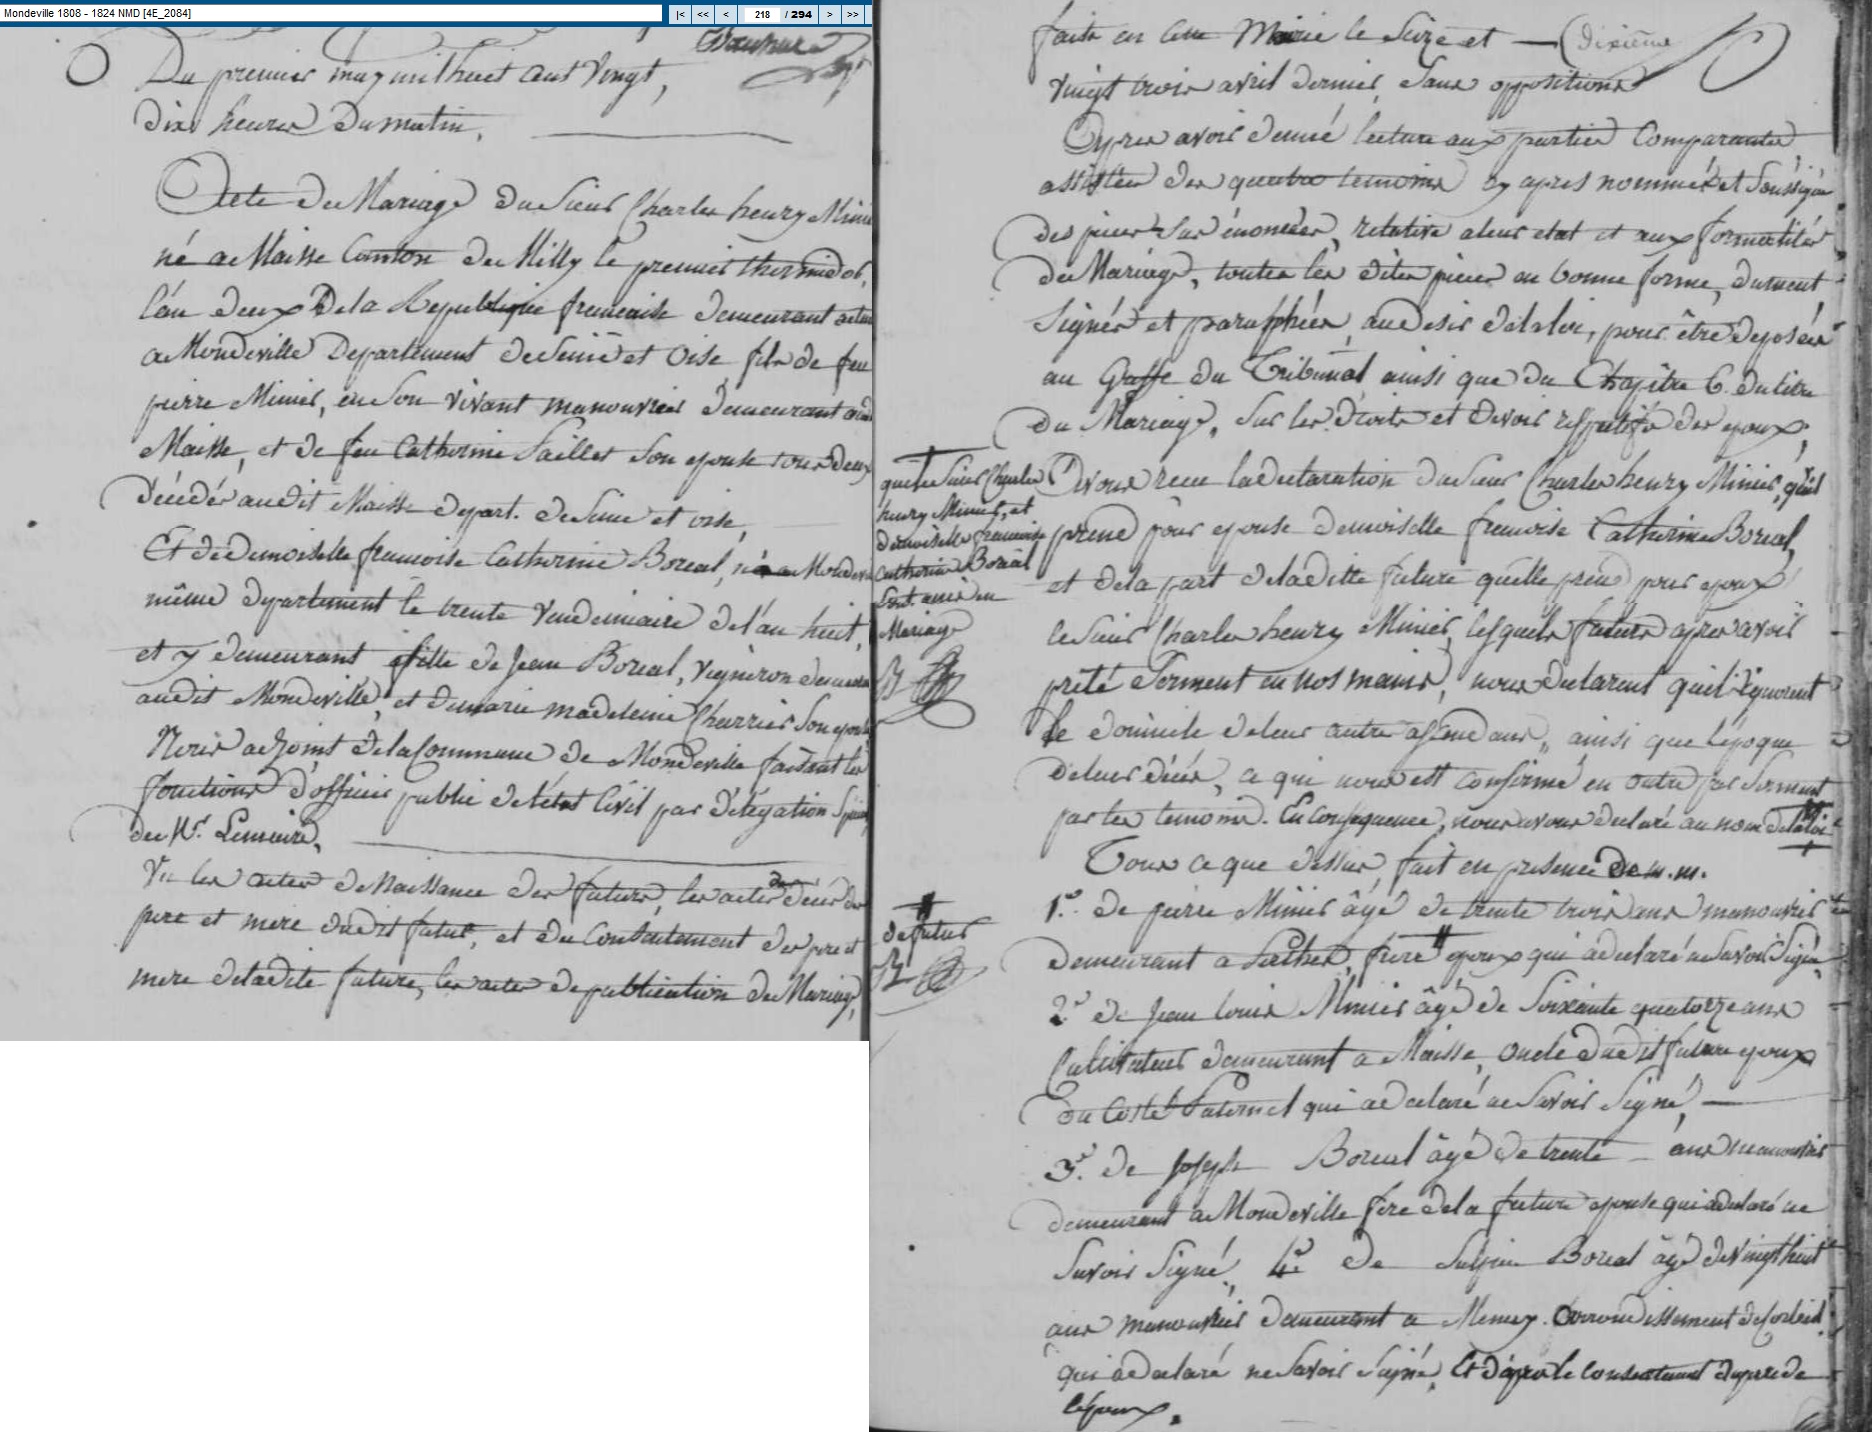 Mondeville 1808 - 1824 NMD [4E_2084]
|< << < 218 / 294 > >>
Du premier may mil huit cent vingt,
dix heures du matin.
Acte de Mariage du Sieur Charles henry Minier
né a Maisse Canton de Milly le premier thermidor,
l'an deux de la Republique francaise demeurant
a Mondeville Departement de Seine et Oise fils de feu
pierre Minier, en son vivant manouvrier demeurant
Maisse, et de feu Catherine Saillet son epouse tous deux
décédés audit Maisse depart. de Seine et oise,
Et de demoiselle francoise Catherine Boreal, née a Mondev
même departement le trente Vendemiaire de l'an huit,
et y demeurant fille de Jean Boreal, Vigneron
audit Mondeville, et de marie madeleine Charrier son epouse
Nous adjoint de la Commune de Mondeville faisant les
fonctions d'officier public de l'état Civil par délégation
de Mr. Lemaire,
Vu les actes de Naissance des futurs, les actes de décès des
pere et mere dudit futur, et du Consentement des pere et
mere de ladite future, les actes de publication de Mariage,
faite en cette Mairie le Seize et — (dixième
vingt trois avril dernier, Sans oppositions
Apres avoir donné lecture aux parties Comparantes
assistées des quatre temoins cy apres nommés et Soussigné
des pieces sus énoncées, relative a leur etat et aux formalités
du Mariage, toutes les dites pieces en bonne forme, dument
Signées et paraphées, au desir de la loi, pour être deposées
au Greffe du Tribunal ainsi que du Chapitre 6 du titre
du Mariage, Sur les droits et devoirs respectifs des epoux,
Avons recu la declaration du Sieur Charles henry Minier, qu'il
prend pour epouse demoiselle francoise Catherine Boreal,
et de la part de ladite future qu'elle prend pour epoux
le Sieur Charles henry Minier, lesquels futurs apres avoir
prêté Serment en nos mains, nous declarent qu'il ignorent
le domicile de leur autre assendans, ainsi que l'époque
de leur décès, ce qui nous est confirmé en outre par Serment
par les temoins. En Consequence, nous avons declaré au nom de la loi
que le Sieur Charles
henry Minier, et
demoiselle francoise
Catherine Boréal
Sont unis en
Mariage
Tous ce que dessus, fait en presence de m.m.
1.º de pierre Minier âgé de trente trois ans manouvrier
demeurant a frere epoux qui a declaré ne Savoir Signé,
de futur
2.º de Jean louis Minier âgé de Soixante quatorze ans
Cultivateur demeurant a Maisse, oncle dudit futur epoux
du Costé Paternel qui a declaré ne Savoir Signé, —
3.º de Joseph Boreal âgé de trente — ans manouvrier
demeurant a Mondeville frere de la future epouse qui a declaré ne
Savoir Signé, 4.º de Sulpice Boreal âgé de vingt huit
ans manouvrier demeurant a Mennecy. arrondissement de Corbeil
qui a declaré ne Savoir Signé, Et d'apres le consentement du pere de
l'epoux.